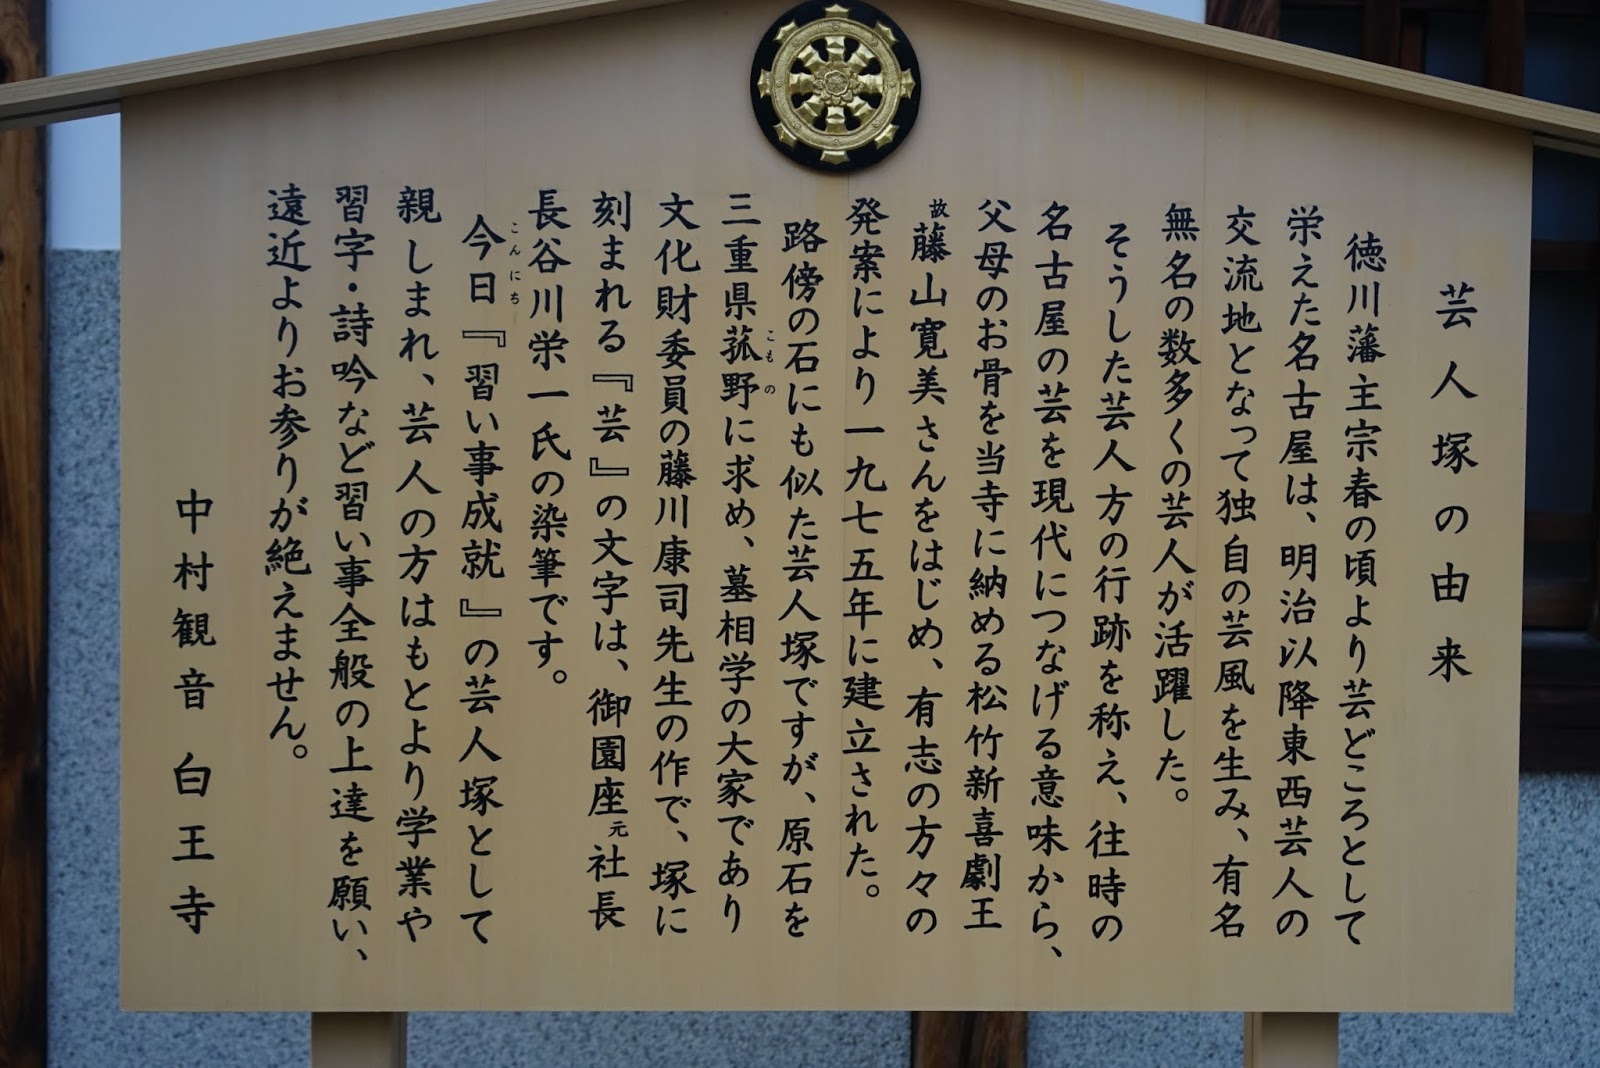 芸人塚の由来
徳川藩主宗春の頃より芸どころとして
栄えた名古屋は、明治以降東西芸人の
交流地となって独自の芸風を生み、有名
無名の数多くの芸人が活躍した。
そうした芸人方の行跡を称え、往時の
名古屋の芸を現代につなげる意味から、
父母のお骨を当寺に納める松竹新喜劇王
故藤山寛美さんをはじめ、有志の方々の
発案により一九七五年に建立された。
路傍の石にも似た芸人塚ですが、原石を
三重県菰野に求め、墓相学の大家であり
こもの
文化財委員の藤川康司先生の作で、塚に
刻まれる『芸』の文字は、御園座元社長
長谷川栄一氏の染筆です。
今日『習い事成就』の芸人塚として
こんにち
親しまれ、芸人の方はもとより学業や
習字・詩吟など習い事全般の上達を願い、
遠近よりお参りが絶えません。
中村観音 白王寺